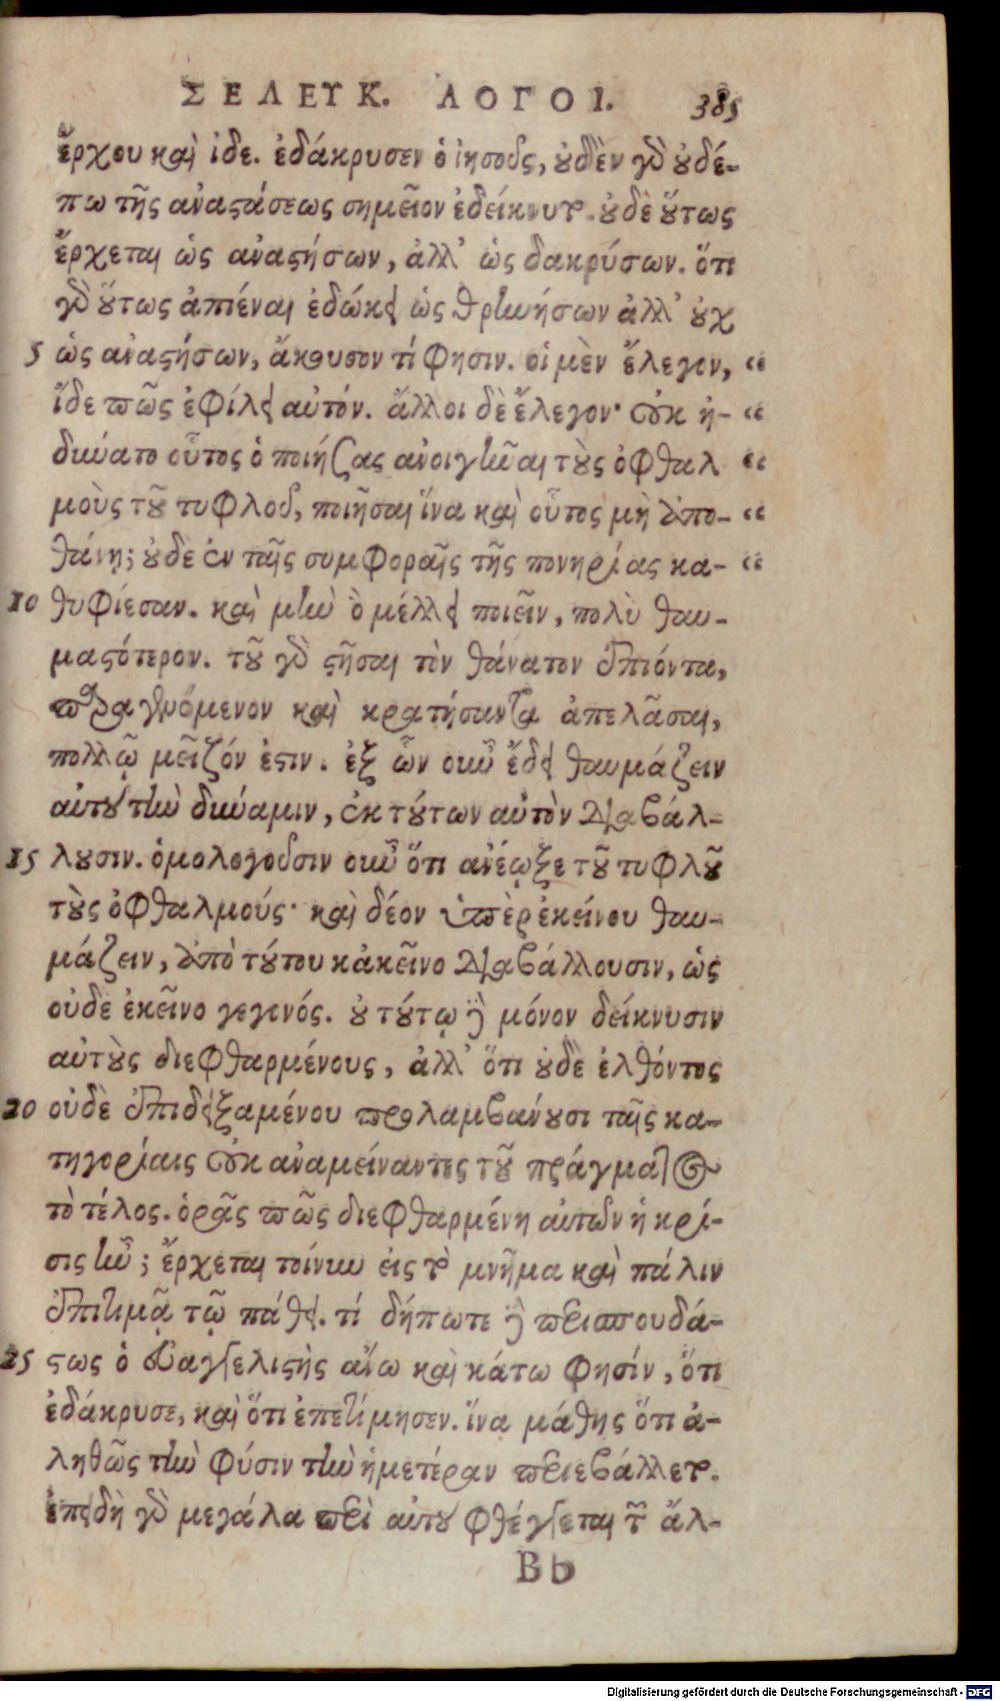 ΣΕΛΕΥΚ. ΛΟΓΟΙ. 385
ἔρχου καὶ ἰδε. ἐδάκρυσεν ὁ ἰησοῦς, οὐδὲν γὸ οὐδέ-
πω τῆς ἀναστάσεως σημεῖον ἐδείκνυτο. οὐδὲ οὕτως
ἔρχεται ὡς ἀναστήσων, ἀλλ' ὡς δακρύσων. ὅτι
γὸ οὕτως ἀπιέναι ἐδώκει ὡς θρηνήσων ἀλλ' οὐχ
5 ὡς ἀναστήσων, ἄκουσον τί φησιν. οἱ μὲν ἔλεγον, “
ἴδε πῶς ἐφίλει αὐτόν. ἄλλοι δὲ ἔλεγον· οὐκ ἠ- “
δύνατο οὗτος ὁ ποιήσας ἀνοιγῆναι τοὺς ὀφθαλ “
μοὺς τοῦ τυφλοῦ, ποιῆσαι ἵνα καὶ οὗτος μὴ ἀπο- “
θάνῃ; οὐδε ἐν ταῖς συμφοραῖς τῆς πονηρίας κα- “
10 θυφίεσαν. καὶ μὴν ὃ μέλλει ποιεῖν, πολὺ θαυ-
μαστότερον. τοῦ γὸ στῆσαι τὸν θάνατον ἐπιόντα,
παραγενόμενον καὶ κρατήσαντα ἀπελᾶσαι,
πολλῷ μεῖζόν ἐστιν. ἐξ ὧν οὖν ἔδει θαυμάζειν
αὐτοῦ τὴν δύναμιν, ἐκ τούτων αὐτὸν διαβάλ-
15 λουσιν. ὁμολογοῦσιν οὖν ὅτι ἀνέῳξε τοῦ τυφλοῦ
τοὺς ὀφθαλμούς· καὶ δέον ὑπὲρ ἐκείνου θαυ-
μάζειν, ἀπὸ τούτου κἀκεῖνο διαβάλλουσιν, ὡς
οὐδὲ ἐκεῖνο γεγονός. οὐ τούτῳ δὲ μόνον δείκνυσιν
αὐτοὺς διεφθαρμένους, ἀλλ' ὅτι οὐδὲ ἐλθόντος
20 οὐδὲ ἐπιδειξαμένου προλαμβάνουσι ταῖς κα-
τηγορίαις οὐκ ἀναμείναντες τοῦ πράγματος
τὸ τέλος. ὁρᾷς πῶς διεφθαρμένη αὐτῶν ἡ κρί-
σις ἦν; ἔρχεται τοίνυν εἰς τὸ μνῆμα καὶ πάλιν
ἐπιτιμᾷ τῷ πάθει. τί δήποτε δὲ περισπουδά-
25 στως ὁ εὐαγγελιστὴς ἄνω καὶ κάτω φησίν, ὅτι
ἐδάκρυσε, καὶ ὅτι ἐπετίμησεν. ἵνα μάθῃς ὅτι ἀ-
ληθῶς τὴν φύσιν τὴν ἡμετέραν περιεβάλλετο.
ἐπειδὴ γὸ μεγάλα περὶ αὐτοῦ φθέγγεται τῶν ἄλ-
Bb
Digitalisierung gefördert durch die Deutsche Forschungsgemeinschaft - DFG